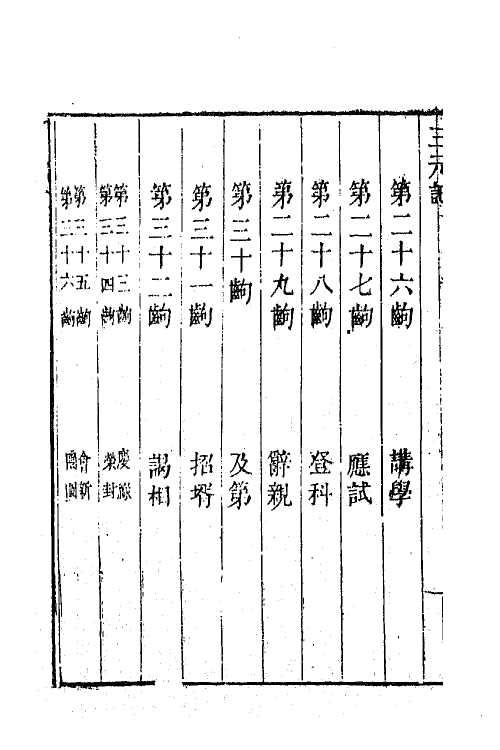 三元記
第二十六齣 講學
第二十七齣 應試
第二十八齣 登科
第二十九齣 辭親
第三十齣 及第
第三十一齣 招壻
第三十二齣 謁相
第三十三齣 慶綵
第三十四齣 榮封
第三十五齣 會新
第三十六齣 團圓